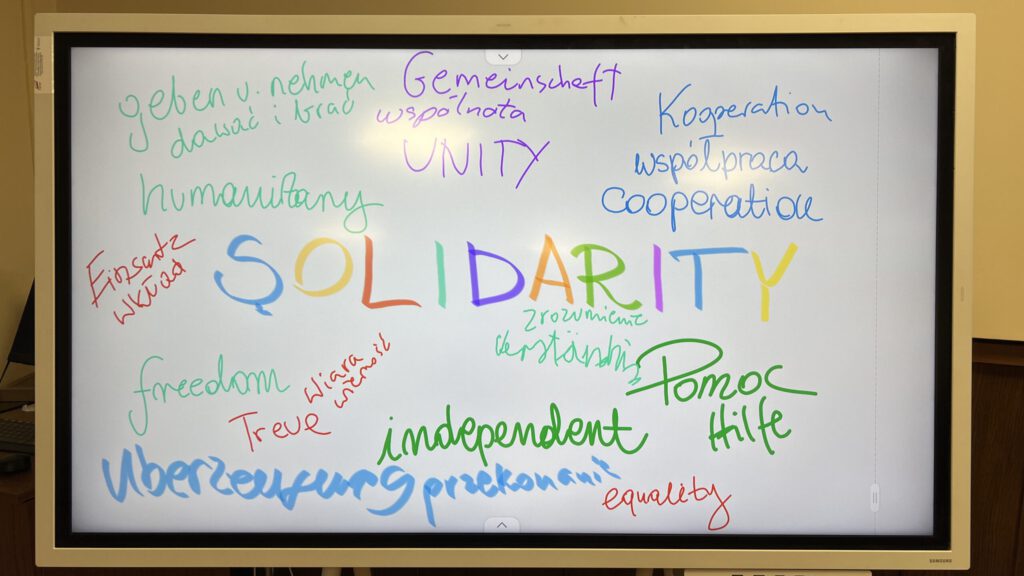 geben u. nehmen
dawać i brać
Gemeinschaft
wspólnota
UNITY
Kooperation
współpraca
cooperation
humanitarny
SOLIDARITY
Einsatz
wkład
zrozumienie
freedom
wiara
wierność
Treue
independent
Pomoc
Hilfe
Uberzeugung przekonanie
equality
SAMSUNG